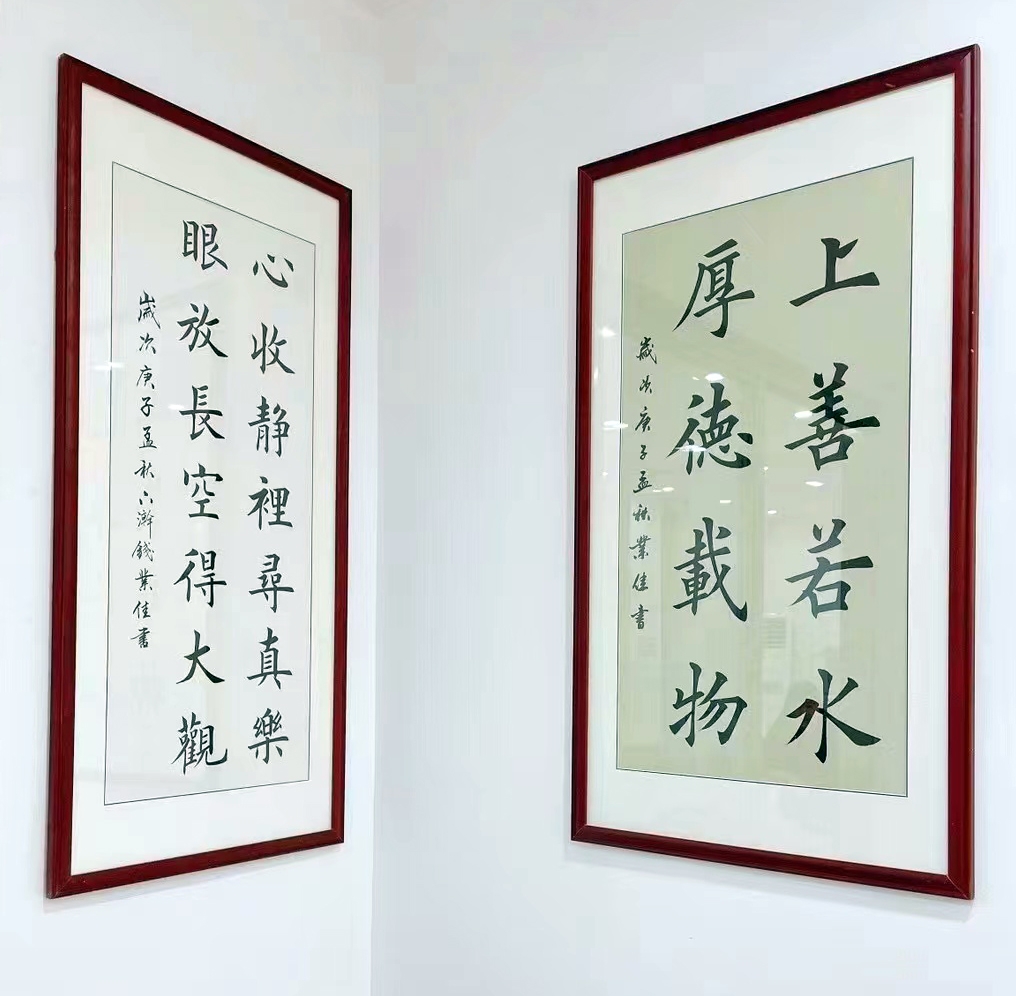 心收静裡尋真樂
眼放長空得大觀
歲次庚子孟秋六澣錢業佳書
上善若水
厚德載物
歲次庚子孟秋業佳書